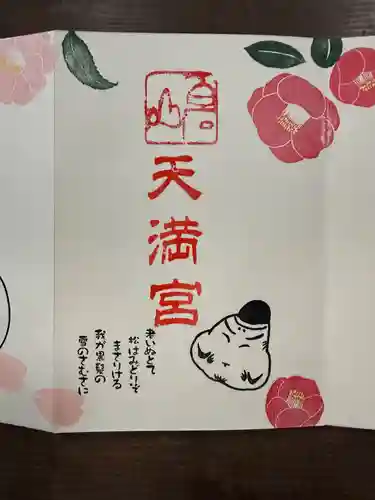 天満宮
老いぬとて
松はみどりぞ
まさりける
我が黒髪の
雪のさむさに